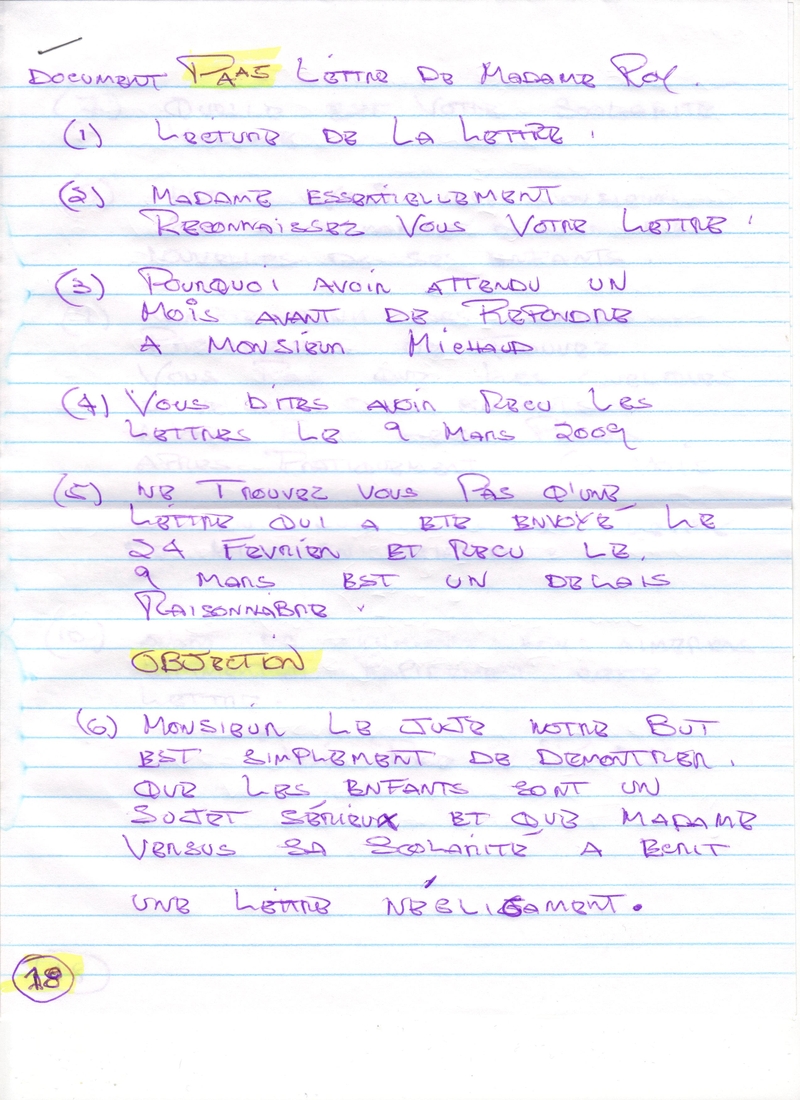 DOCUMENT PAAS LETTRE DE MADAME ROY.
(1) LECTURE DE LA LETTRE.
(2) MADAME ESSENTIELLEMENT
RECONNAISSEZ VOUS VOTRE LETTRE.
(3) POURQUOI AVOIR ATTENDU UN
MOIS AVANT DE REPONDRE
A MONSIEUR MICHAUD
(4) VOUS DITES AVOIR RECU LES
LETTRES LE 9 MARS 2009
(5) NE TROUVEZ VOUS PAS QU'UNE
LETTRE QUI A ETE ENVOYÉ LE
24 FEVRIER ET RECU LE.
9 MARS EST UN DELAIS
RAISONNABLE.
OBJECTION
(6) MONSIEUR LE JUJE NOTRE BUT
EST SIMPLEMENT DE DEMONTRER.
QUE LES ENFANTS SONT UN
SUJET SÉRIEUX ET QUE MADAME
VERSUS SA SCOLARITÉ A ECRIT
UNE LETTRE NÉGLIGAMENT.
18